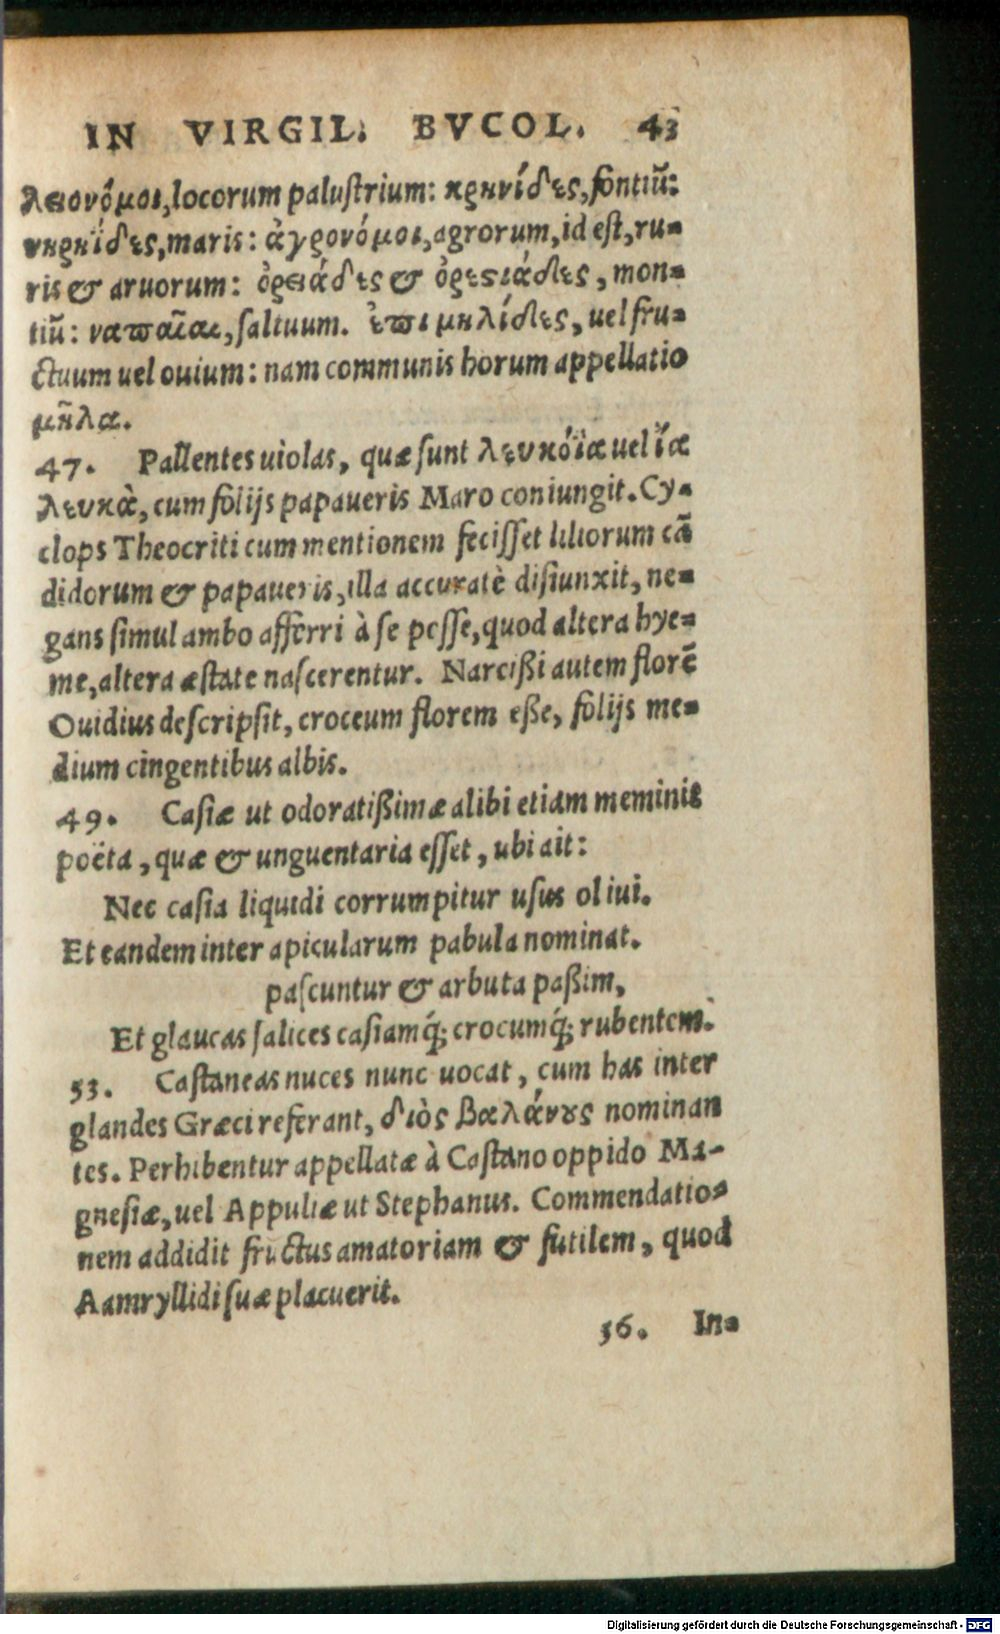 IN VIRGIL. BVCOL. 43
λειονόμοι, locorum palustrium: κρηνίδες, fontiũ:
νηρηΐδες, maris: ἀγρονόμοι, agrorum, id est, ru-
ris & aruorum: ὀρειάδες & ὀρεστιάδες, mon-
tiũ: ναπαῖαι, saltuum. ἐπιμηλίδες, uel fru-
ctuum uel ouium: nam communis horum appellatio
μῆλα.
47. Pallentes uiolas, quæ sunt λευκόϊα uel ἴα
λευκὰ, cum folijs papaueris Maro coniungit. Cy-
clops Theocriti cum mentionem fecisset liliorum cã
didorum & papaueris, illa accuratè disiunxit, ne-
gans simul ambo afferri à se posse, quod altera hye-
me, altera æstate nascerentur. Narcißi autem florẽ
Ouidius descripsit, croceum florem eße, folijs me-
dium cingentibus albis.
49. Casiæ ut odoratißimæ alibi etiam meminit
poëta, quæ & unguentaria esset, ubi ait:
Nec casia liquidi corrumpitur usus oliui.
Et eandem inter apicularum pabula nominat.
pascuntur & arbuta paßim,
Et glaucas salices casiamq́; crocumq́; rubentem.
53. Castaneas nuces nunc uocat, cum has inter
glandes Græci referant, διὸς βαλάνους nominan
tes. Perhibentur appellatæ à Castano oppido Ma-
gnesiæ, uel Appuliæ ut Stephanus. Commendatio-
nem addidit fructus amatoriam & futilem, quod
Aamryllidi suæ placuerit.
56. In-
Digitalisierung gefördert durch die Deutsche Forschungsgemeinschaft - DFG